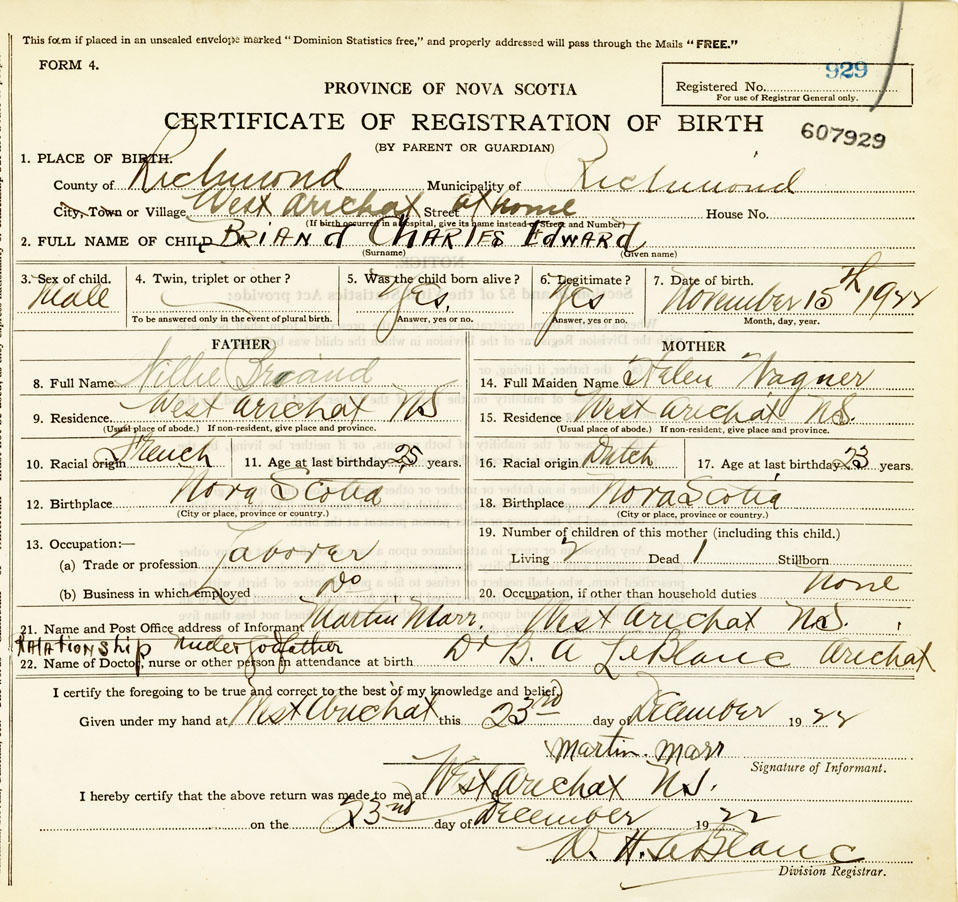 This form if placed in an unsealed envelope marked "Dominion Statistics free," and properly addressed will pass through the Mails "FREE."
FORM 4.
929
Registered No.
For use of Registrar General only.
PROVINCE OF NOVA SCOTIA
CERTIFICATE OF REGISTRATION OF BIRTH
607929
(BY PARENT OR GUARDIAN)
1. PLACE OF BIRTH.
County of Richmond Municipality of Richmond
City, Town or Village West Arichat Street at home House No.
(If birth occurred in a hospital, give its name instead of Street and Number)
2. FULL NAME OF CHILD Briand Charles Edward
(Surname) (Given name)
3. Sex of child. 4. Twin, triplet or other? 5. Was the child born alive? 6. Legitimate? 7. Date of birth.
Male Yes. Yes November 15th 1922
To be answered only in the event of plural birth. Answer, yes or no. Answer, yes or no. Month, day, year.
FATHER MOTHER
8. Full Name Willie Briand 14. Full Maiden Name Helen Wagner
9. Residence West Arichat NS 15. Residence West Arichat N.S.
(Usual place of abode.) If non-resident, give place and province. (Usual place of abode.) If non-resident, give place and province.
10. Racial origin French 11. Age at last birthday 25 years. 16. Racial origin Dutch 17. Age at last birthday 23 years.
12. Birthplace Nova Scotia 18. Birthplace Nova Scotia
(City or place, province or country.) (City or place, province or country.)
13. Occupation:— 19. Number of children of this mother (including this child.)
(a) Trade or profession Laborer Living 2 Dead 1 Stillborn
(b) Business in which employed Do 20. Occupation, if other than household duties None
21. Name and Post Office address of Informant Martin Marr, West Arichat N.S.
Relationship godfather
22. Name of Doctor, nurse or other person in attendance at birth Dr B. A LeBlanc Arichat
I certify the foregoing to be true and correct to the best of my knowledge and belief,
Given under my hand at West Arichat this 23rd day of December 1922
Martin. Marr
Signature of Informant.
I hereby certify that the above return was made to me at West Arichat N.S.
on the 23rd day of December 1922
W. H. LeBlanc
Division Registrar.